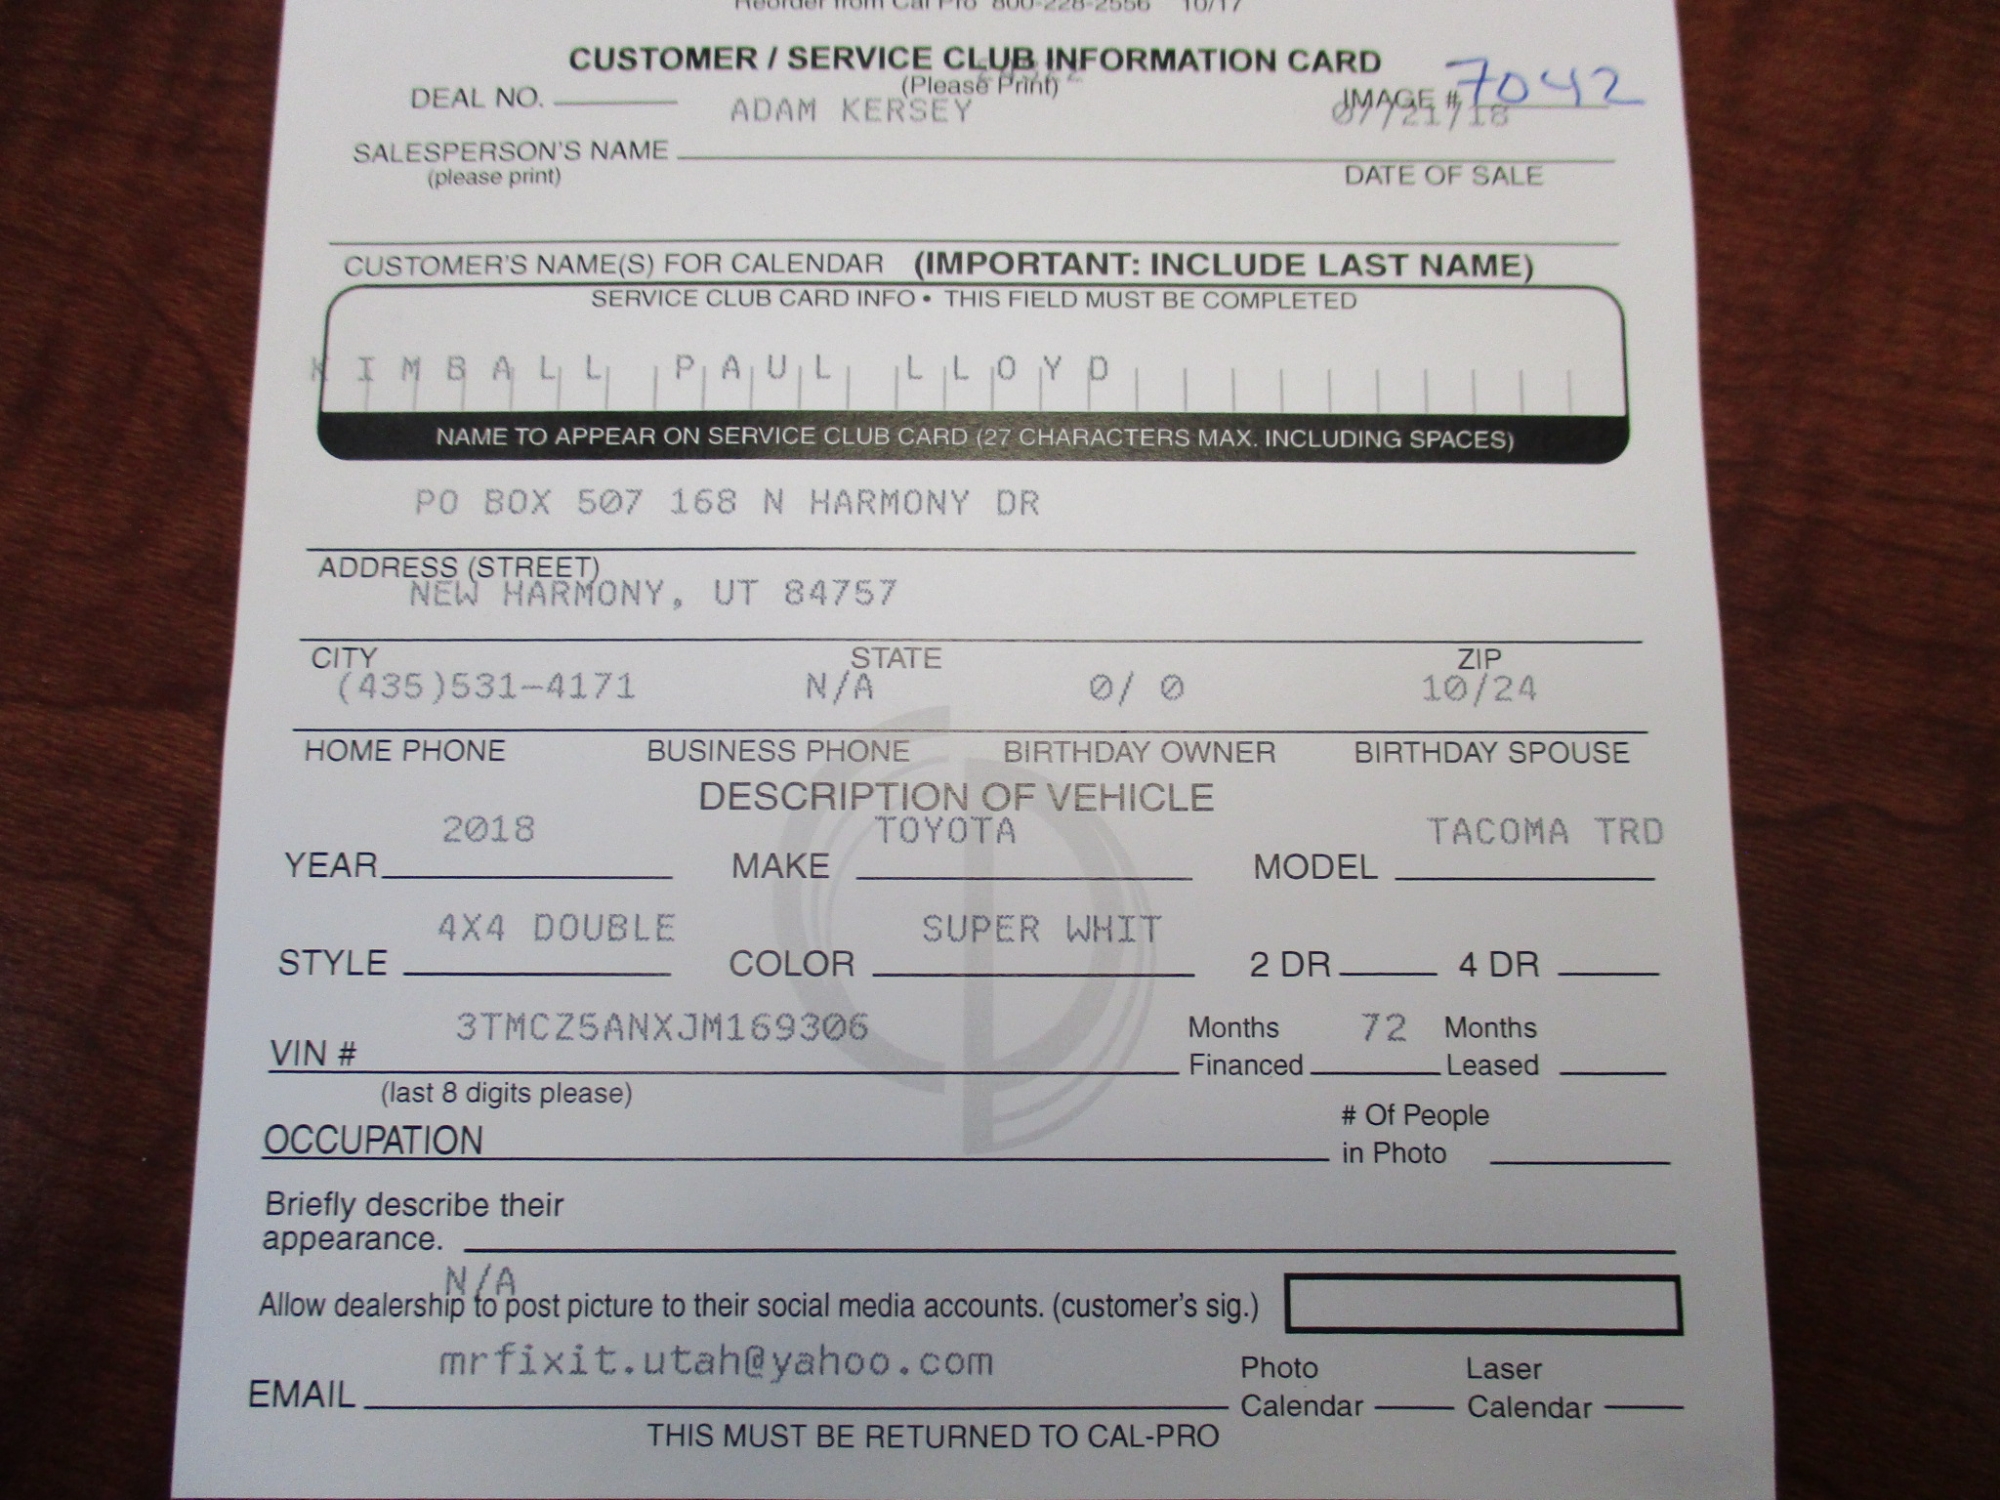 Reorder from Cal Pro 800-228-2556 10/17
CUSTOMER / SERVICE CLUB INFORMATION CARD
(Please Print)
DEAL NO. IMAGE # 7042
ADAM KERSEY 07/21/18
SALESPERSON'S NAME
(please print) DATE OF SALE
CUSTOMER'S NAME(S) FOR CALENDAR (IMPORTANT: INCLUDE LAST NAME)
SERVICE CLUB CARD INFO • THIS FIELD MUST BE COMPLETED
KIMBALL PAUL LLOYD
NAME TO APPEAR ON SERVICE CLUB CARD (27 CHARACTERS MAX. INCLUDING SPACES)
PO BOX 507 168 N HARMONY DR
ADDRESS (STREET)
NEW HARMONY, UT 84757
CITY STATE ZIP
(435)531-4171 N/A 0/ 0 10/24
HOME PHONE BUSINESS PHONE BIRTHDAY OWNER BIRTHDAY SPOUSE
DESCRIPTION OF VEHICLE
2018 TOYOTA TACOMA TRD
YEAR MAKE MODEL
4X4 DOUBLE SUPER WHIT
STYLE COLOR 2 DR 4 DR
3TMCZ5ANXJM169306 Months 72 Months
VIN # Financed Leased
(last 8 digits please)
# Of People
OCCUPATION in Photo
Briefly describe their
appearance.
N/A
Allow dealership to post picture to their social media accounts. (customer's sig.)
mrfixit.utah@yahoo.com Photo Laser
EMAIL Calendar Calendar
THIS MUST BE RETURNED TO CAL-PRO